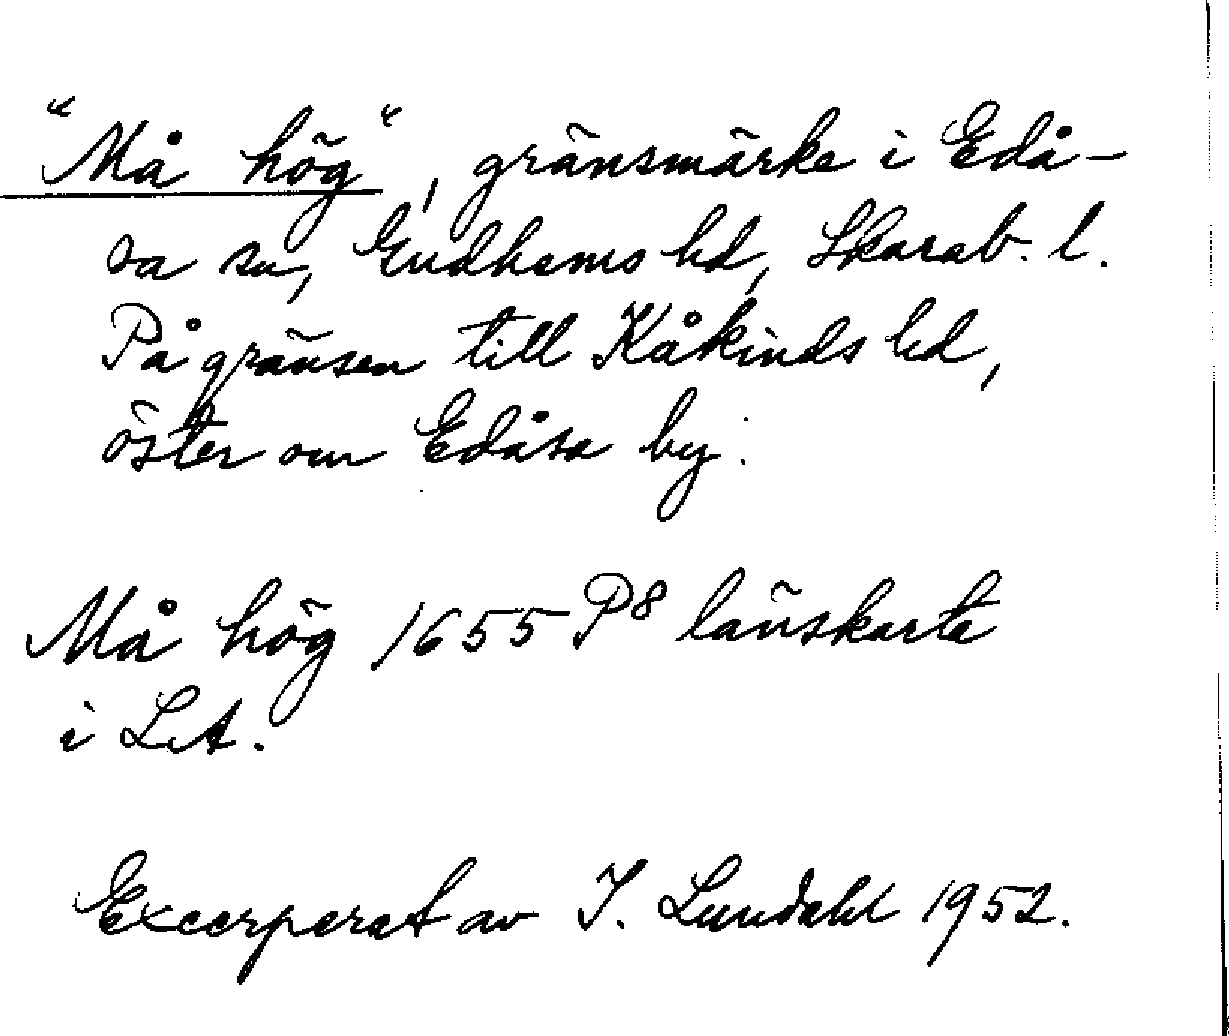 "Må hög", gränsmärke i Edå-
sa sn, Gudhems hd, Skarab. l.
På gränsen till Kåkinds hd,
öster om Edåsa by.
Må hög 1655 P8 länskarta
i LSA.
Excerperat av I. Lundahl 1952.